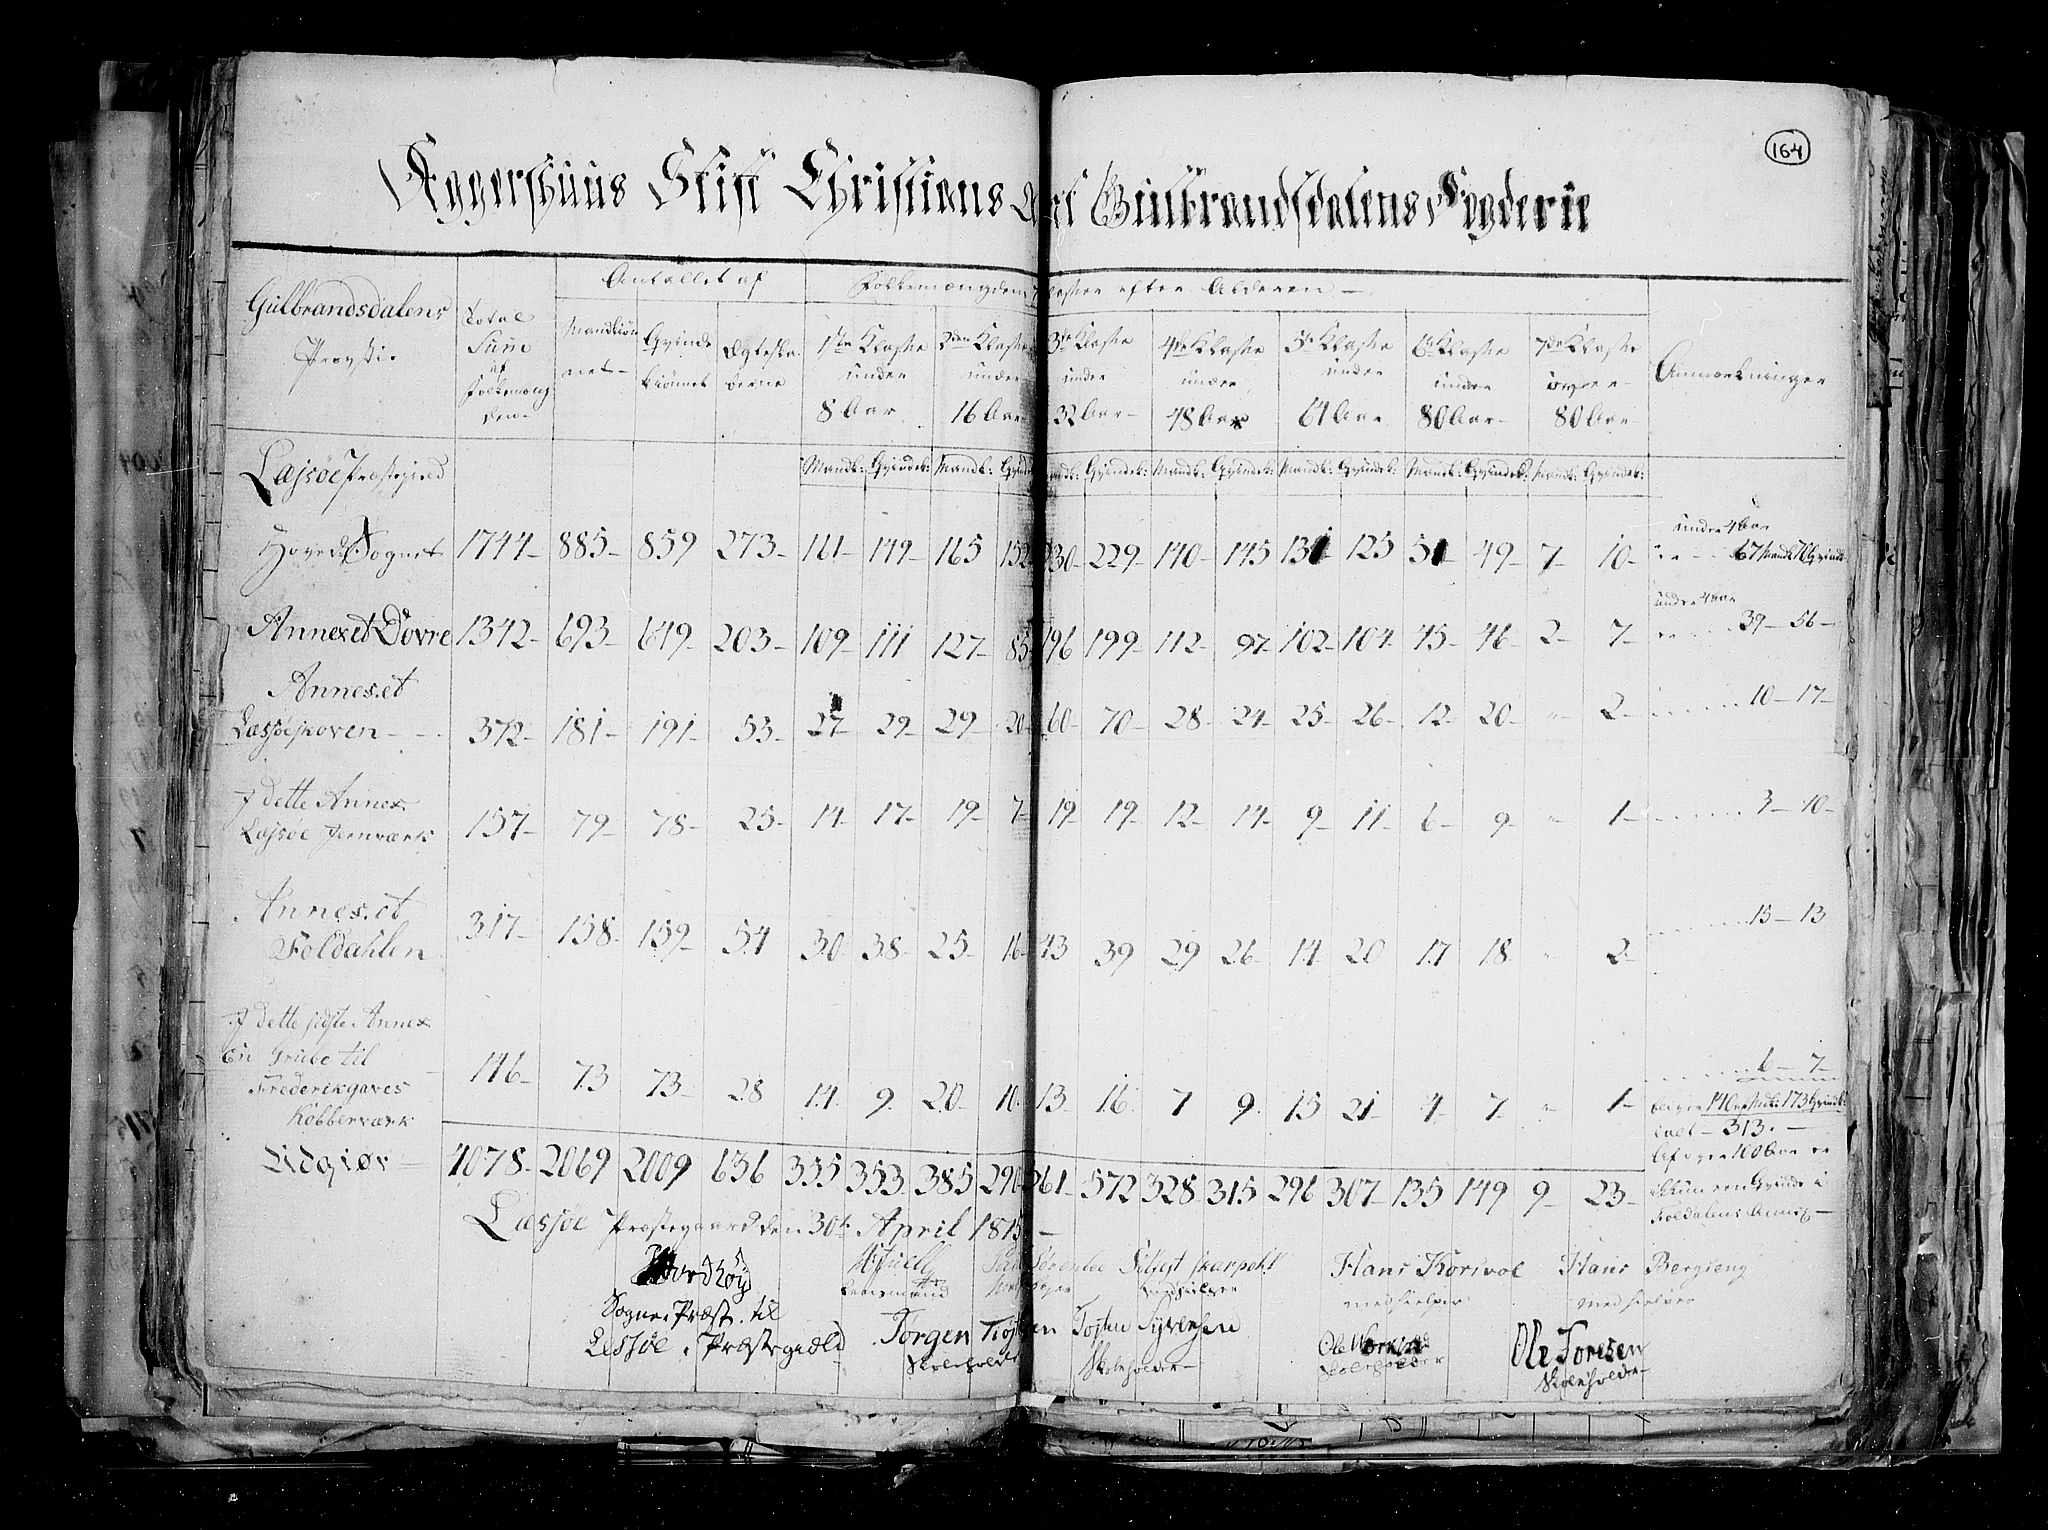 164
Aggershuus Stift Christians Amt Gulbrandsdalens Fogderie
Gulbrandsdalens Provsti. Total Sum af Folkemængden Antallet af Folkemængdens Klasser efter Alderen Anmærkninger
Mandkiønnet Qvindekiønnet Ægteskaberne 1ste Klasse under 8 Aar 2den Klasse under 16 Aar 3de Klasse under 32 Aar 4de Klasse under 48 Aar 5te Klasse under 64 Aar 6te Klasse under 80 Aar 7de Klasse over 80 Aar
Læsjøe Præstegield Mandk: Qvindek: Mandk: Qvindek: Mandk: Qvindek: Mandk: Qvindek: Mandk: Qvindek: Mandk: Qvindek: Mandk: Qvindek:
Hoved Sognet 1744 885 859 273 161 149 165 152 230 229 140 145 131 125 51 49 7 10 under 4 Aar 67 Mandk 70 Qvindk
Annexet Dovre 1342 693 649 203 109 111 127 85 196 199 112 97 102 104 45 46 2 7 under 4 Aar 39 – 56
Annexet
Læssøeskoven 372 181 191 53 27 29 29 20 60 70 28 24 25 26 12 20 " 2 10 – 17
I dette Annex
Læsjøe Jernværk 157 79 78 25 14 17 19 7 19 19 12 14 9 11 6 9 " 1 3 – 10
Annexet
Foldahlen 317 158 159 54 30 38 25 16 43 39 29 26 14 20 17 18 " 2 15 – 13
I dette sidste Annex
En Grube til
Frederikgaves
Kobberværk 146 73 73 28 14 9 20 10 13 16 7 9 15 21 4 7 " 1 6 – 7
140 Mdk: 173 Qvindk:
313
Af over 100 Aar er
ikkun een Qvinde i
Foldalens Annex
Udgiør 4078 2069 2009 636 355 353 385 290 561 572 328 315 296 307 135 149 9 23
Læsjøe Præstegaard den 30te April 1815
Sogne Præst til
Lessøe Præstegield
Lensmand
Hans Korsvol
medhielper
Hans Bergseng
medhielper
Jørgen
Skoleholder
Tosten Syversen
Skoleholder
Ole
Skoleholder
Ole Toresen
Skoleholder